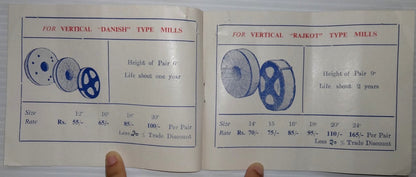 FOR VERTICAL "DANISH" TYPE MILLS
Height of Pair 6"
Life about one year
Size 12" 16" 18" 20"
Rate Rs. 55/- 65/- 85/- 100/- Per Pair
Less 20 % Trade Discount
FOR VERTICAL "RAJKOT" TYPE MILLS
Height of Pair 9"
Life about 2 years
Size 14" 15 16" 18" 20" 24"
Rate Rs. 70/- 75/- 85/- 95/- 110/- 165/- Per Pair
Less 20 % Trade Discount